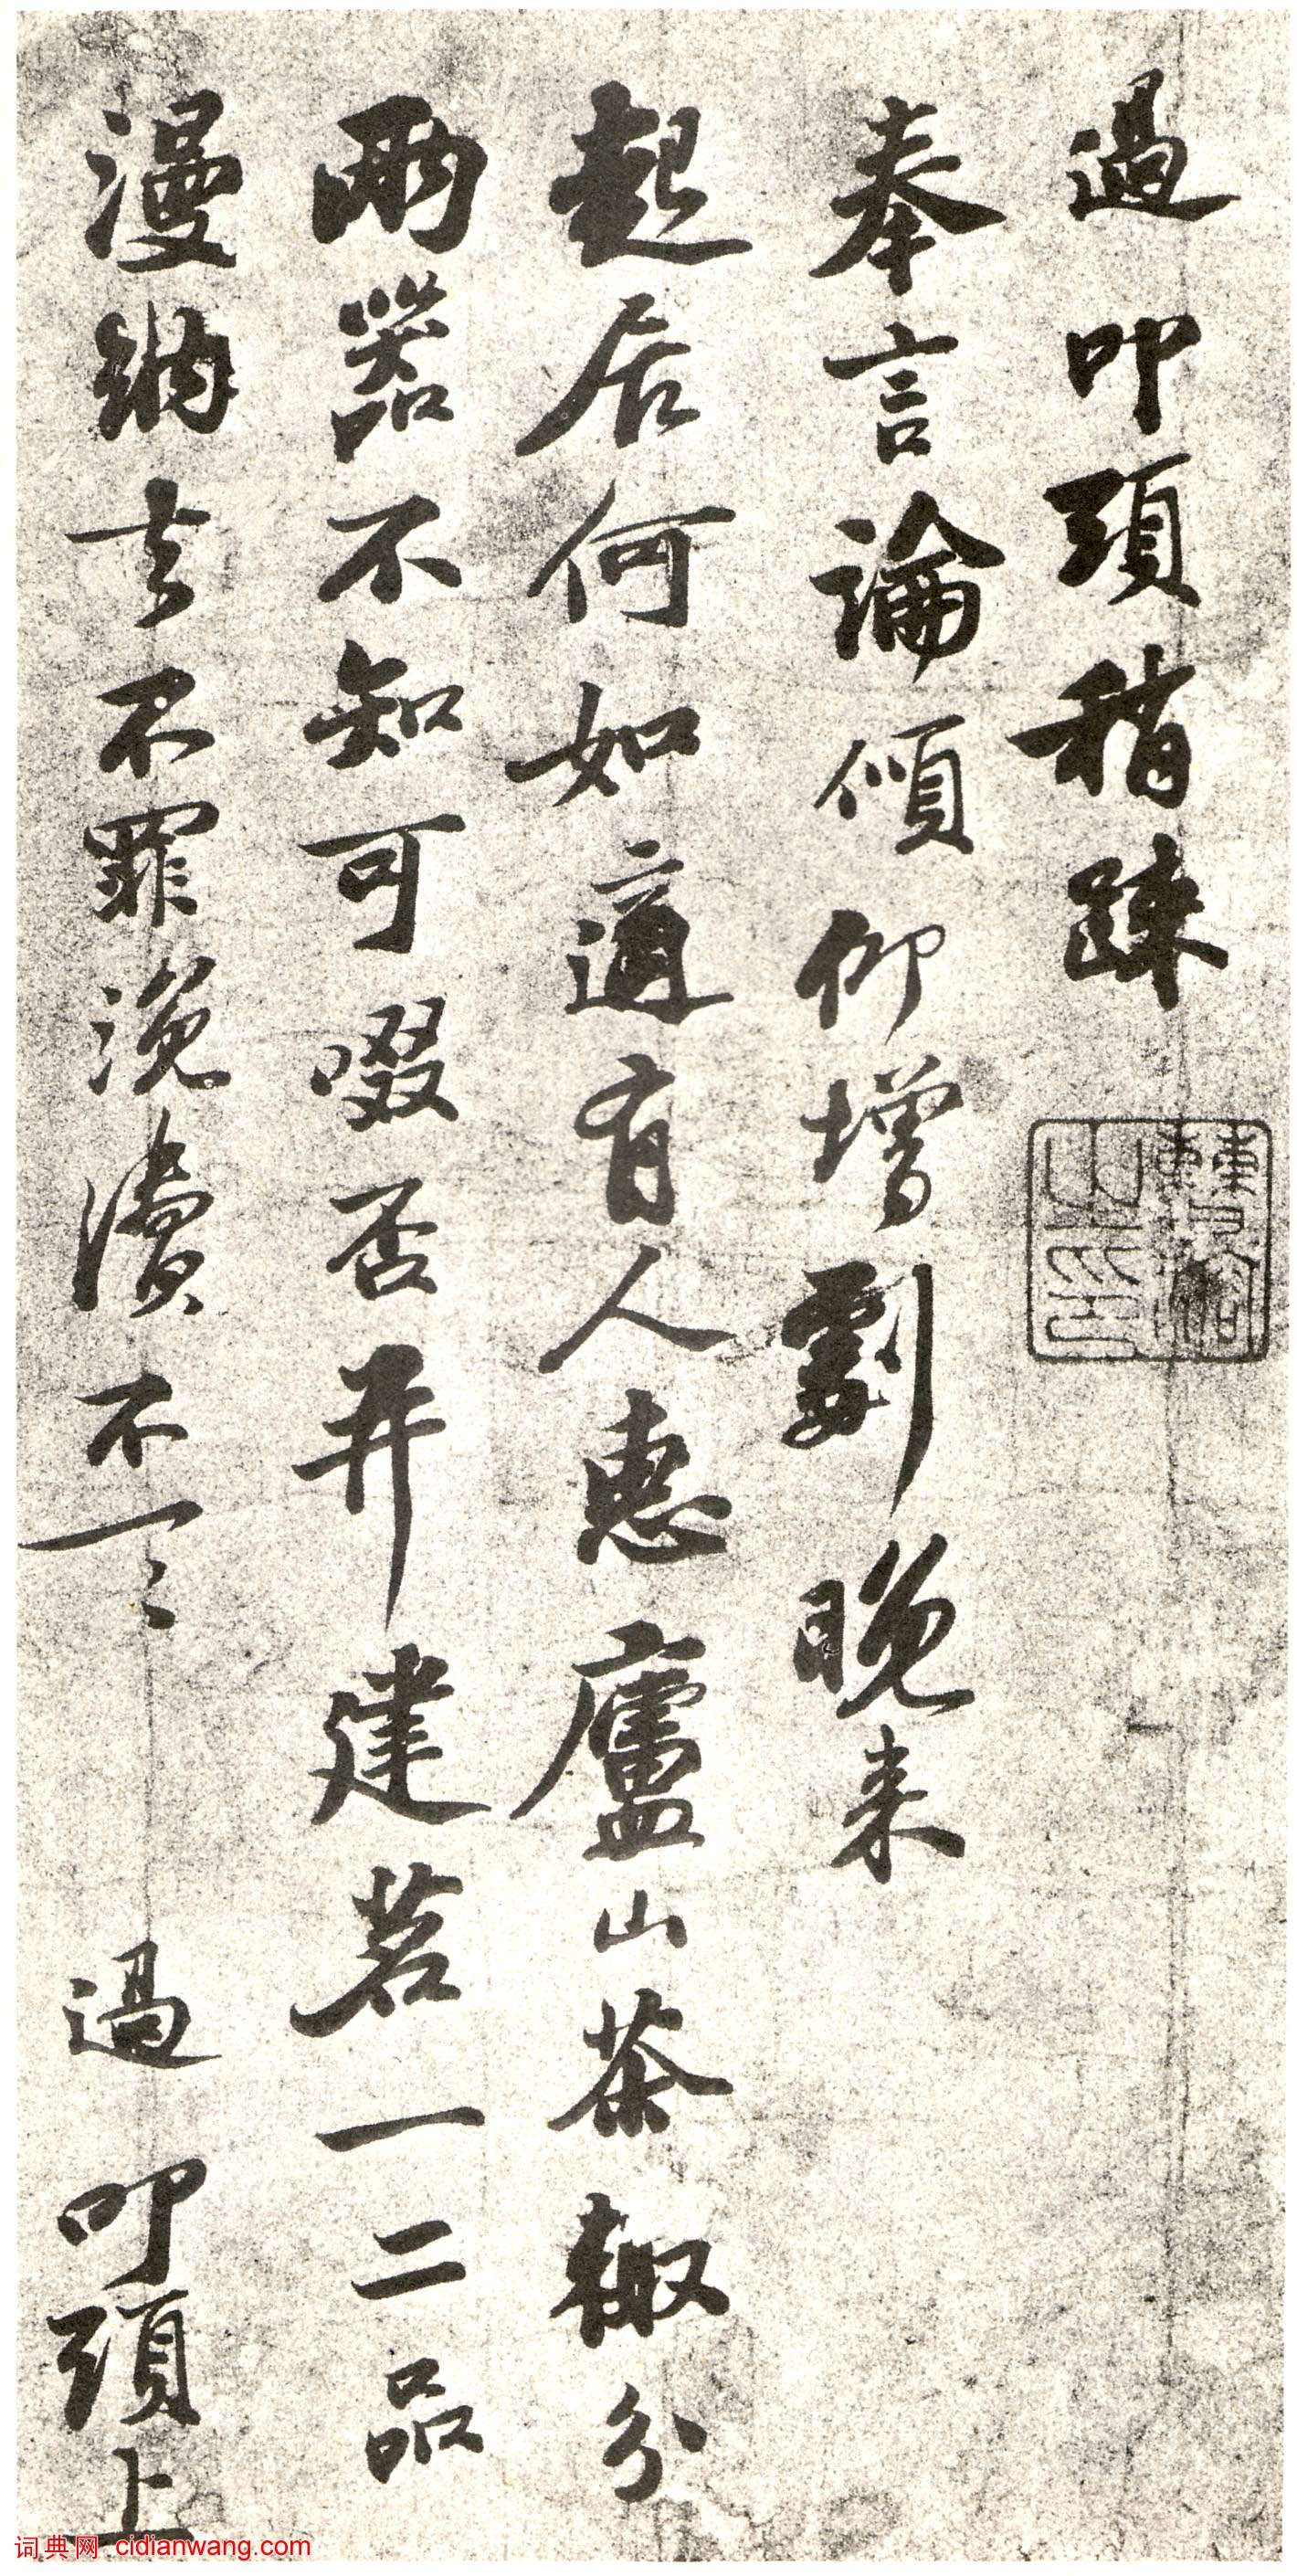 過叩頭稍踈
奉言論傾仰增劇晚来
起居何如適有人惠廬山茶輙分
兩器不知可啜否并建茗一二品
漫納去不罪浼瀆不一〻
過叩頭上
词典网 cidianwang.com